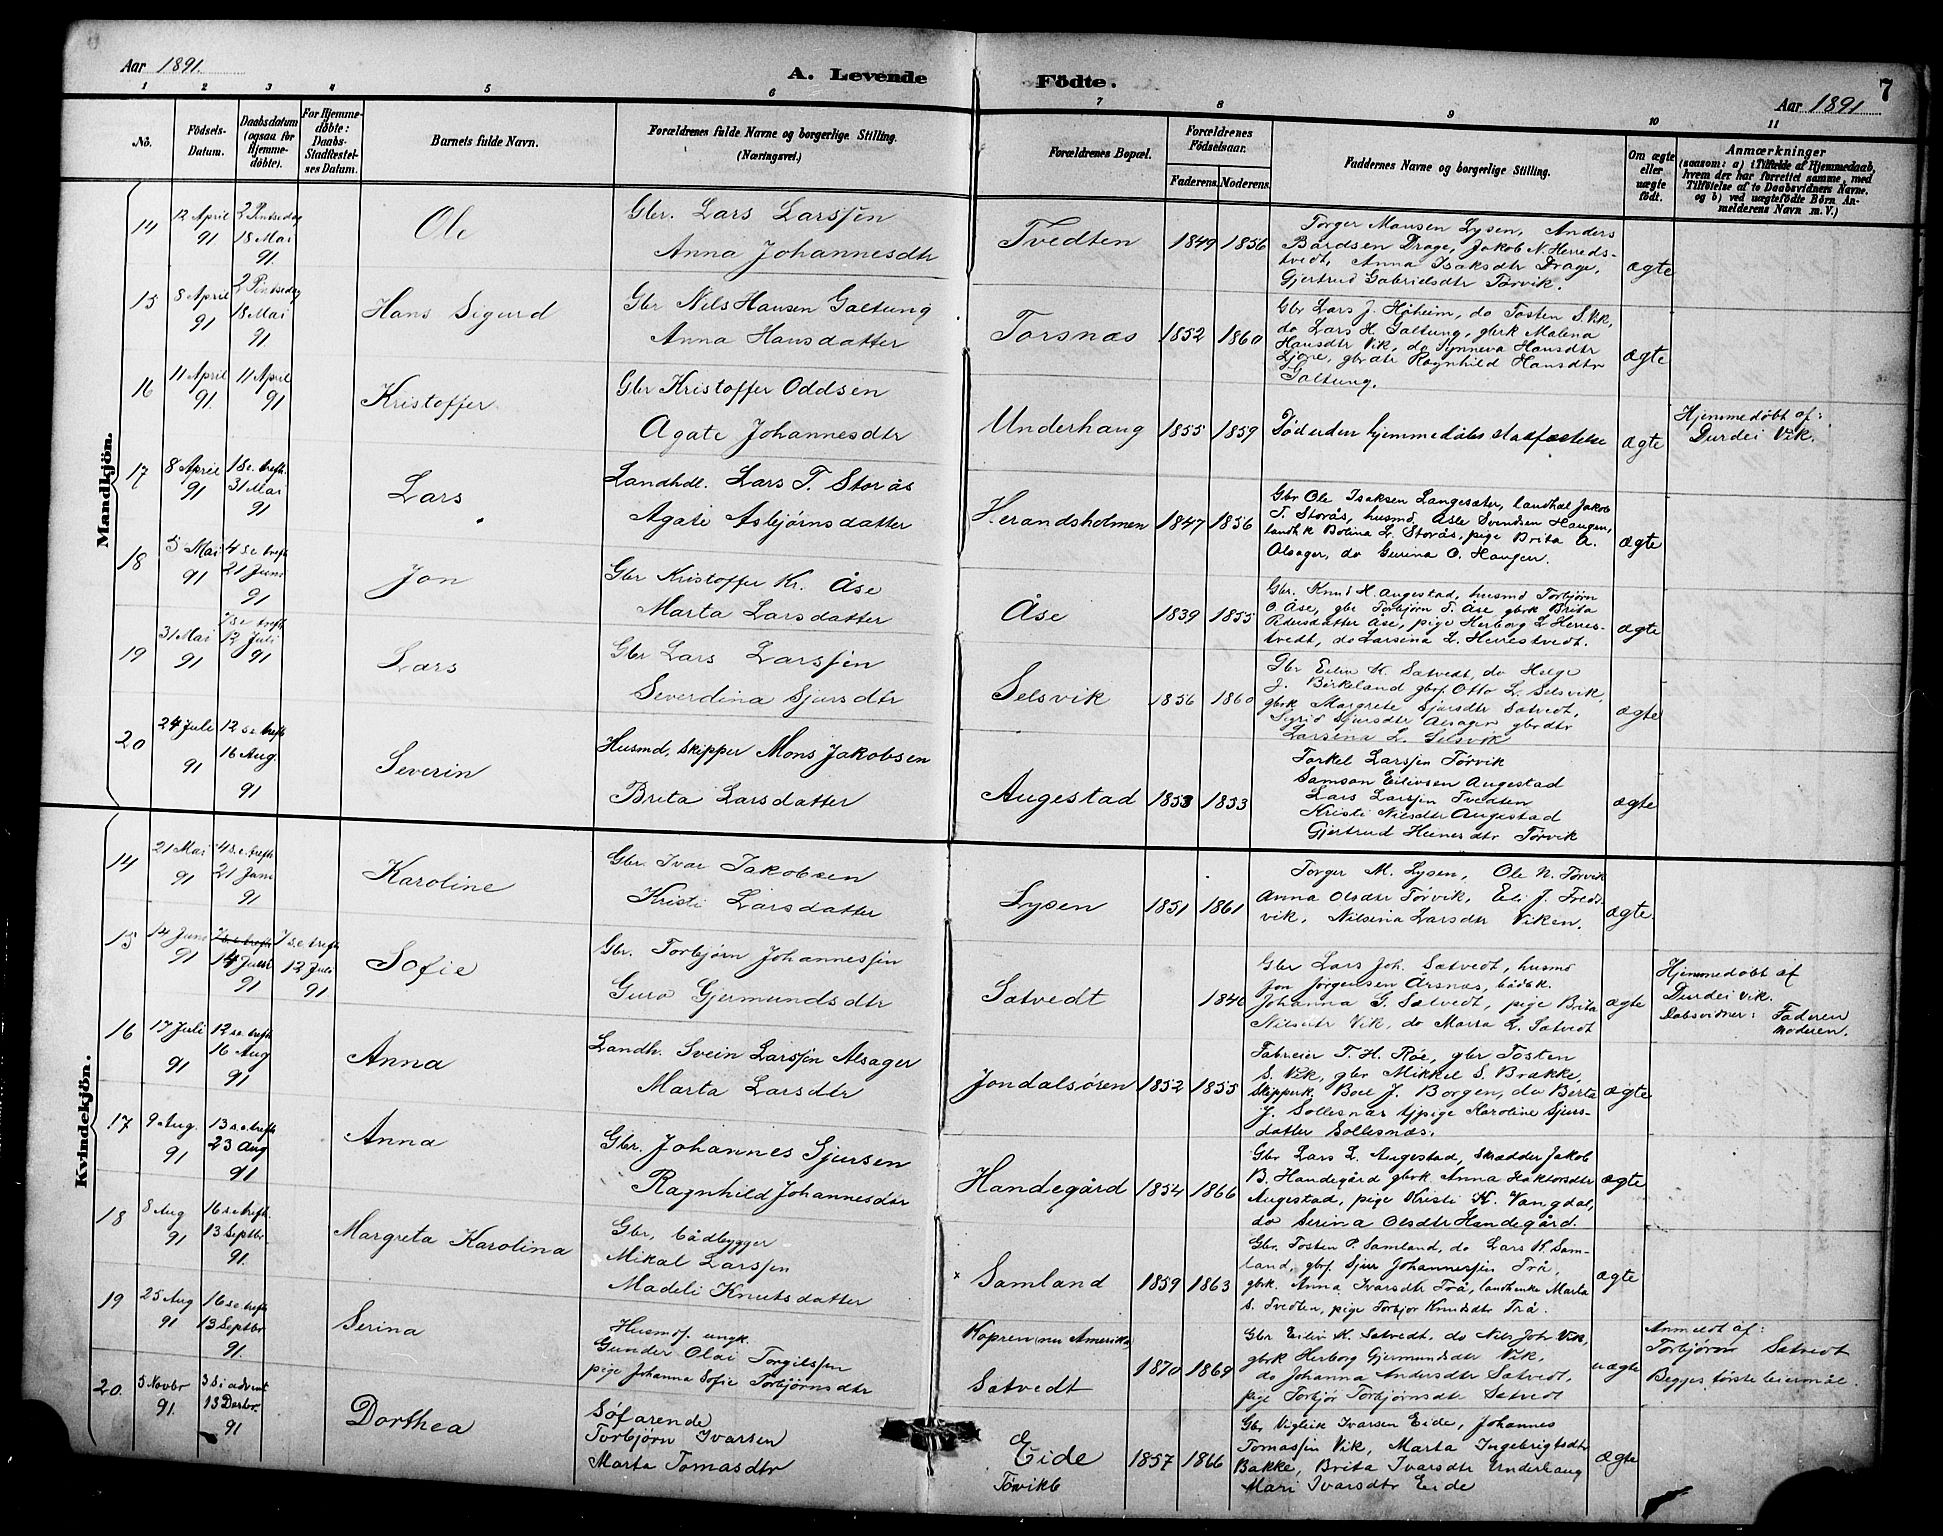 Aar 1891.
A. Levende Födte.
7
Aar 1891
1 2 3 4 5 6 7 8 9 10 11
No.
Födsels-Datum.
Daabsdatum (ogsaa for Hjemme-döbte).
For Hjemme-döbte: Daabs-Stadfæstel-ses Datum.
Barnets fulde Navn.
Forældrenes fulde Navne og borgerlige Stilling. (Næringsvei.)
Forældrenes Bopæl.
Forældrenes Födselsaar.
Faderens. Moderens.
Faddernes Navne og borgerlige Stilling.
Om ægte eller uægte födt.
Anmærkninger
(saasom: a) i Tilfælde af Hjemmedaab, hvem der har forrettet samme, med Tilföielse af to Daabsvidners Navne. og b) ved uægtefödte Börn An-melderens Navn m. V.)
Mandkjön.
14
12 April 91
2 Pintsedag 18 Mai 91
Ole
Gbr. Lars Larssen
Anna Johannesdtr
Tvedten
1849 1856
Torger Monsen Lysen, Anders
Bårdsen Drage, Jakob N. Herreds-
tvedt, Anna Isaksdtr Drage,
Gjertrud Gabrielsdtr Torvik.
ægte
15
8 April 91
2 Pintsedag 18 Mai 91
Hans Sigurd
Gbr Nils Hansen Galtung
Anna Hansdatter
Torsnæs
1852 1860
Gbr Lars J. Høheim, do Tosten S. Vik,
do Lars H. Galtung, gbrk Malena
Hansdtr Vik, do Synneva Hansdtr
gbrdtr Ragnhild Hansdtr
Galtung.
ægte
16
11 April 91.
11 April 91
Kristoffer
Gbr Kristoffer Oddsen
Agate Johannesdtr
Underhaug
1855 1859
Død uden hjemmedåbs stadfæstelse
ægte
Hjemmedøbt af:
Durdei Vik.
17
8 April 91
1 S.e. trefh. 31 Mai 91
Lars
Landhdl. Lars T. Storås
Agate Asbjørnsdatter
Herandsholmen
1847 1856
Gbr Ole Isaksen Langesæter, landhdl Jakob
T. Storås, husmd. Asle Svendsen Haugen,
landhk Botina L. Storås, pige Brita A.
Alsager, do Gurina O. Haugen.
ægte
18
5 Mai 91
4 s.e. trefh 21 Juni 91
Jon
Gbr Kristoffer Kr. Åse
Marta Larsdatter
Åse
1839 1855
Gbr. Knud H. Augestad, husmd Torbjørn
O. Åse, gbr Torbjørn T. Åse gbrk Brita
Pedersdatter Åse, pige Herborg L Herre-
tvedt, do Larsena L. Herrestvedt.
ægte
19
31 Mai 91
7 s.e. trefh 12 Juli 91
Lars
Gbr Lars Larssen
Severdina Sjursdtr
Selsvik
1856 1860
Gbr Eiliv K. Sætvedt, do Helge
J. Birkeland gbrf. Otto L. Selsvik,
gbrk Margrete Sjursdtr Sætvedt,
Sigrid Sjursdtr Alsager gbrdtr
Larsena L. Selsvik
ægte
20
24 Juli 91
12 s.e. trefh 16 Aug. 91
Severin
Husmd, skipper Mons Jakobsen
Brita Larsdatter
Augestad
1853 1853
Torkel Larssen Torvik
Samson Eilivsen Augestad
Lars Larssen Tvedten
Kristi Nilsdtr Augestad
Gjertrud Torvik
ægte
Kvindekjön.
14
21 Mai 91
4 s.e. trefh 21 Juni 91
Karoline
Gbr. Ivar Jakobsen
Kristi Larsdatter
Lysen
1851 1861
Torger M. Lysen, Ole N. Torvik
Anna Olsdtr Torvik, Eli J. Freds-
vik, Nilsina Larsdtr Viken.
ægte
15
14 Juni 91
7 s.e. trefh 14 Juni 91
7 s.e. trefh 12 Juli 91
Sofie
Gbr. Torbjørn Johannessen
Guro Gjermundsdtr
Sætvedt
1846
Gbr Lars Joh. Sætvedt, husmd
Jon Jørgensen Årsnæs,
Johanna G. Sætvedt, pige Brita
Nilsdtr Vik, do Marta L. Sætvedt
ægte
Hjemmedøbt af
Durdei Vik.
Dåbsvidner: Faderen
Moderen.
16
17 Juli 91
12 s.e. trefh 16 Aug 91
Anna
Landh. Svein Larssen Alsager
Marta Larsdtr
Jondalsören
1852 1855
T. H. Røe, gbr Tosten
S. Vik, gbr Mikkel S. Brække,
Skipperk. Boel J. Borgen, do Berta
J. Sollesnæs tjpige Karoline Sjurs-
datter Sollesnæs.
ægte
17
9 Aug. 91
13 s.e. trefh 23 Aug 91
Anna
Gbr. Johannes Sjursen
Ragnhild Johannesdtr
Handegård
1854 1866
Gbr Lars L. Augestad, Skrædder Jakob
B. Handegård gbrk Anna Haktorsdtr
Augestad, pige Kristi K. Vangdal,
do Serina Olsdtr Handegård.
ægte
18
8 Aug 91
16 s.e. trefh. 13 Septbr 91.
Margreta Karolina
Gbr, bådbygger
Mikal Larssen
Madeli Knutsdatter
x Samland
1859 1863
Gbr. Tosten P. Samland, do Lars K. Sam-
land, gbrf. Sjur Johannessen Trå,
gbrk. Anna Ivarsdtr Trå, landhenke Marta
S. Tvedten, pige Torbjor Knudsdtr Trå.
ægte
19
25 Aug 91
16 s.e. trefh 13 Septbr 91.
Serina
Husmsf. ungk.
Gunder Olai Torgilssen
pige Johanna Sofie Torbjørnsdtr
Kopren (nu Amerika)
Sætvedt
1870 1869
Gbr Eiliv K. Sætvedt, do Nils Joh Vik,
gbrk Herborg Gjermundsdtr Vik,
do Johanna Andersdtr Sætvedt,
pige Torbjør Torbjørnsdtr Sætvedt
uægte
Anmeldt af:
Torbjörn Sætvedt
Begges første leiermål.
20.
5 Novbr 91.
3 S i advent 13 Decbr. 91
Dorthea
Søfarende
Torbjørn Ivarsen
Marta Tomasdtr
Eide
Torvikb
1857 1866
Gbr Vigleik Ivarsen Eide, Johannes
Tomassen Vik, Marta Ingebrigtsdtr
Bakke, Brita Ivarsdtr Underhaug
Mari Ivarsdtr Eide
ægte